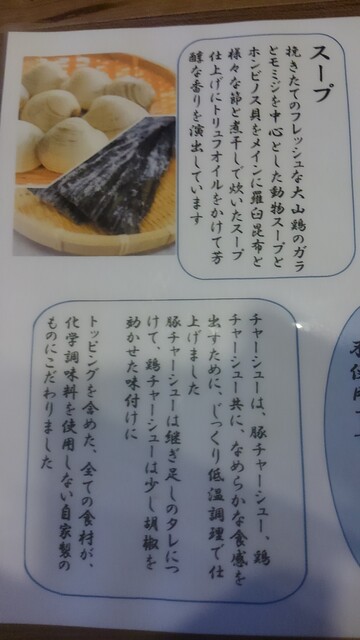 スープ
挽きたてのフレッシュな大山鶏のガラ
とモミジを中心とした動物スープと
ホンビノス貝をメインに羅臼昆布と
様々な節と煮干しで炊いたスープ
仕上げにトリュフオイルをかけて芳
醇な香りを演出しています
チャーシューは、豚チャーシュー、鶏
チャーシュー共に、なめらかな食感を
出すために、じっくり低温調理で仕
上げました
豚チャーシューは継ぎ足しのタレにつ
けて、鶏チャーシューは少し胡椒を
動かせた味付けに
トッピングを含めた、全ての食材が、
化学調味料を使用しない自家製の
ものにこだわりました